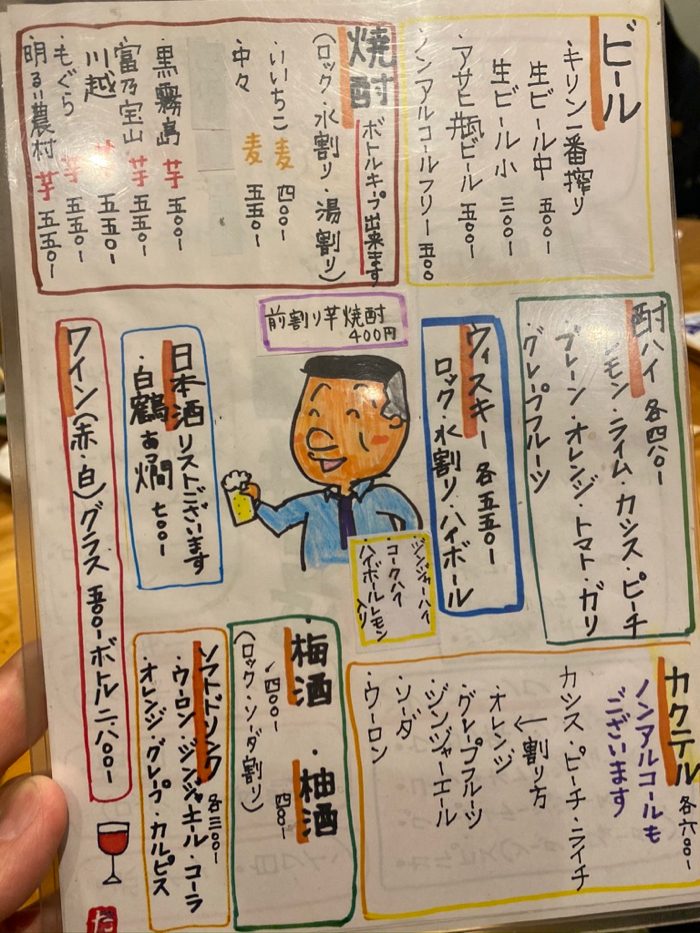 ビール
・キリン一番搾り
生ビール中 五〇〇-
生ビール小 三〇〇-
・アサヒ瓶ビール 五〇〇-
・ノンアルコールフリー 五〇〇
焼酎 ボトルキープ出来ます
(ロック・水割り・湯割り)
・いいちこ 麦 四〇〇-
・中々 麦 五五〇-
・黒霧島 芋 五〇〇-
・富乃宝山 芋 五五〇-
・川越 芋 五五〇-
・もぐら 芋 五五〇-
・明るい農村 芋 五五〇-
酎ハイ 各四八〇-
レモン・ライム・カシス・ピーチ
・プレーン・オレンジ・トマト・ガリ
・グレープフルーツ
ウィスキー 各五五〇-
ロック・水割り・ハイボール
・ジンジャーハイ
・コークハイ
・ハイボールレモン入り
前割り芋焼酎
400円
日本酒 リストございます
・白鶴 あつ燗 七〇〇-
ワイン(赤・白)グラス 五〇〇- ボトル 二、八〇〇-
カクテル 各六〇〇-
ノンアルコールも
ございます
カシス・ピーチ・ライチ
← 割り方
・オレンジ
・グレープフルーツ
・ジンジャーエール
・ソーダ
・ウーロン
・梅酒 四〇〇-
・柚酒 四八〇-
(ロック・ソーダ割り)
ソフトドリンク 各三〇〇-
・ウーロン・ジンジャエール・コーラ
・オレンジ・グレープ・カルピス